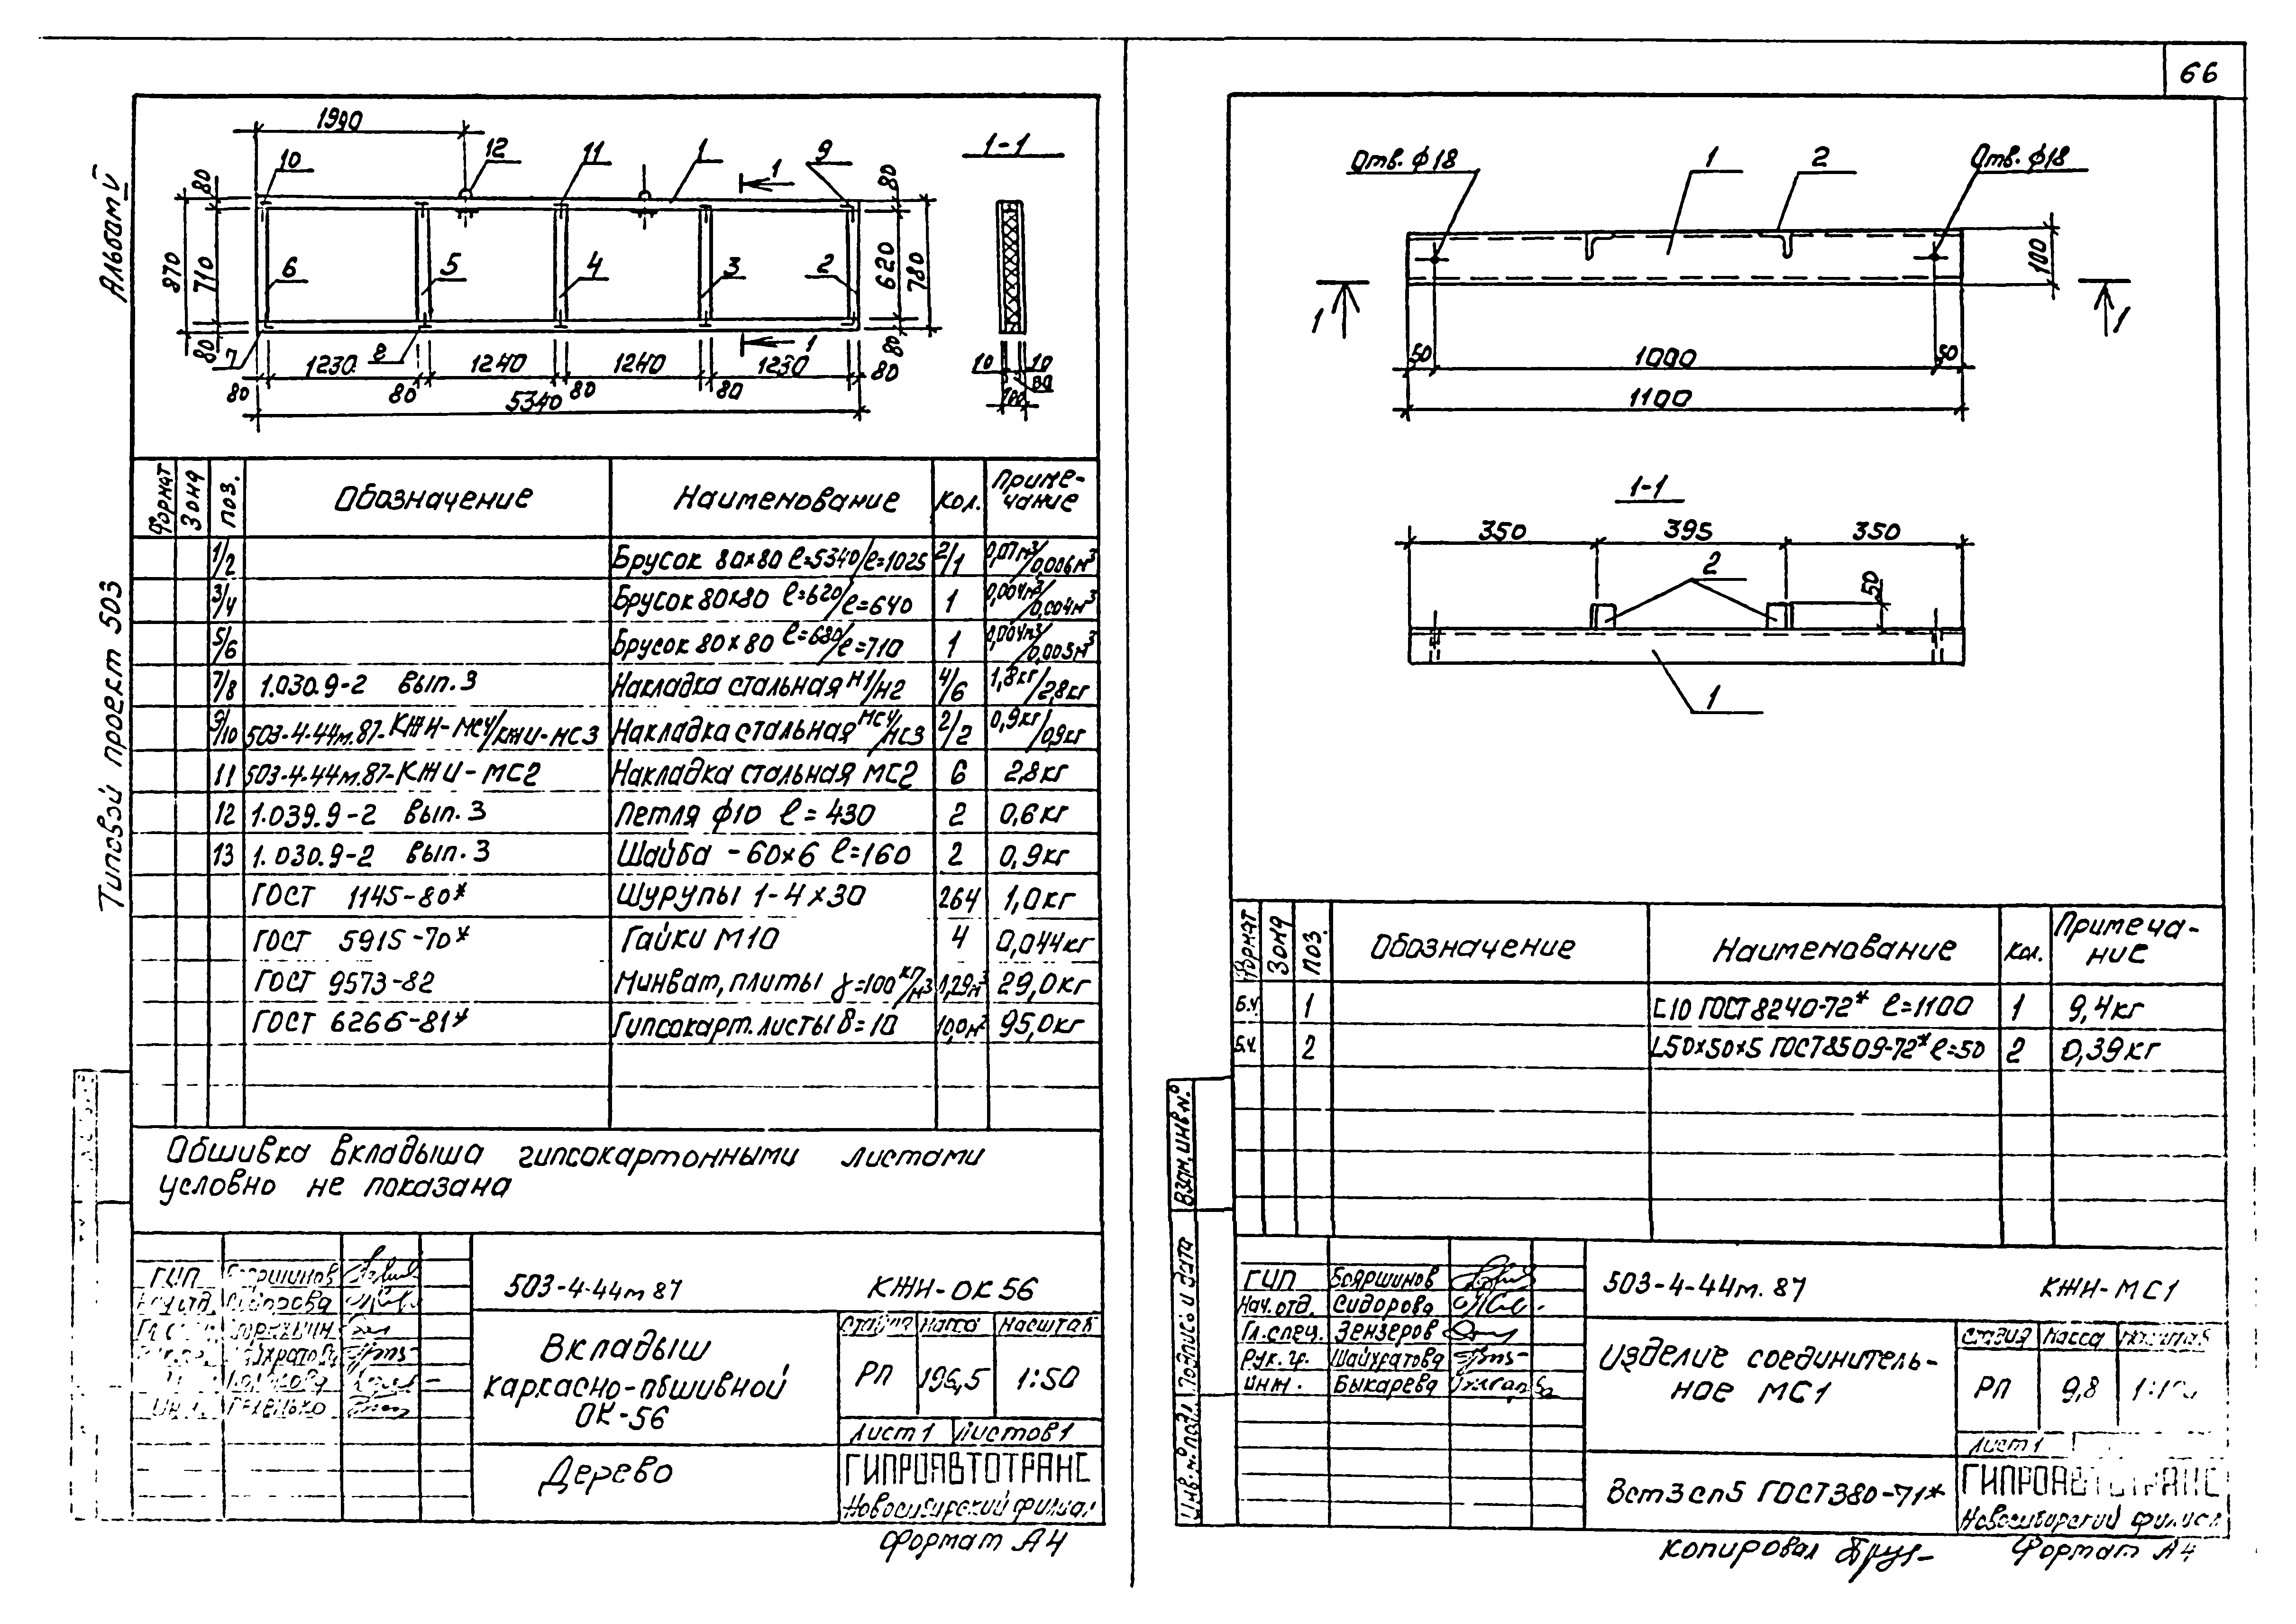 66
Альбом V
Типовой проект 503
1990
10
12
11
1
1
9
1-1
80
870
710
80
6
5
4
3
2
80
620
780
80
7
8
1
1230
1240
1240
1230
80
80
80
80
80
5340
10
10
80
100
Формат
Зона
Поз.
Обозначение
Наименование
Кол.
Примечание
1/2 Брусок 80x80 ℓ=5340/ℓ=1025 2/1 0,07м³/0,006м³
3/4 Брусок 80x80 ℓ=620/ℓ=640 1 0,004м³/0,004м³
5/6 Брусок 80x80 ℓ=680/ℓ=710 1 0,004м³/0,005м³
7/8 1.030.9-2 вып.3 Накладка стальная Н1/Н2 4/6 1,8кг/2,8кг
9/10 503-4-44м.87-КЖИ-МС4/КЖИ-МС3 Накладка стальная МС4/МС3 2/2 0,9кг/0,9кг
11 503-4-44м.87-КЖИ-МС2 Накладка стальная МС2 6 2,8кг
12 1.039.9-2 вып.3 Петля ф10 ℓ=430 2 0,6кг
13 1.030.9-2 вып.3 Шайба -60x6 ℓ=160 2 0,9кг
ГОСТ 1145-80* Шурупы 1-4x30 264 1,0кг
ГОСТ 5915-70* Гайки М10 4 0,044кг
ГОСТ 9573-82 Минват, плиты γ=100 кг/м³ 1,29м³ 29,0кг
ГОСТ 6266-81* Гипсокарт. листы δ=10 10,0м² 95,0кг
Обшивка вкладыша гипсокартонными листами
условно не показана
ГИП Бояршинов
503-4-44м 87 КЖИ-ОК56
Вкладыш
каркасно-обшивной
ОК-56
Стадия Масса Масштаб
РП 196,5 1:50
Лист 1 Листов 1
Дерево
ГИПРОАВТОТРАНС
Новосибирский филиал
Формат А4
Отв. ф18
1
2
Отв. ф18
100
1
1
50
1000
50
1100
1-1
350
395
350
2
50
1
Формат
Зона
Поз.
Обозначение
Наименование
Кол.
Примечание
Б.ч. 1 [10 ГОСТ 8240-72* ℓ=1100 1 9,4кг
Б.ч. 2 L50x50x5 ГОСТ 8509-72* ℓ=50 2 0,39кг
Взам. инв. №
Подпись и дата
Инв. № подл.
ГИП Бояршинов
Нач. отд. Сидорова
Гл. спец. Зензеров
Рук. гр. Шайхратова
Инж. Быкарева
503-4-44м. 87 КЖИ-МС1
Изделие соединитель-
ное МС1
Стадия Масса Масштаб
РП 9,8
Лист 1
Вст3сп5 ГОСТ380-71*
ГИПРОАВТОТРАНС
Новосибирский филиал
Копировал
Формат А4